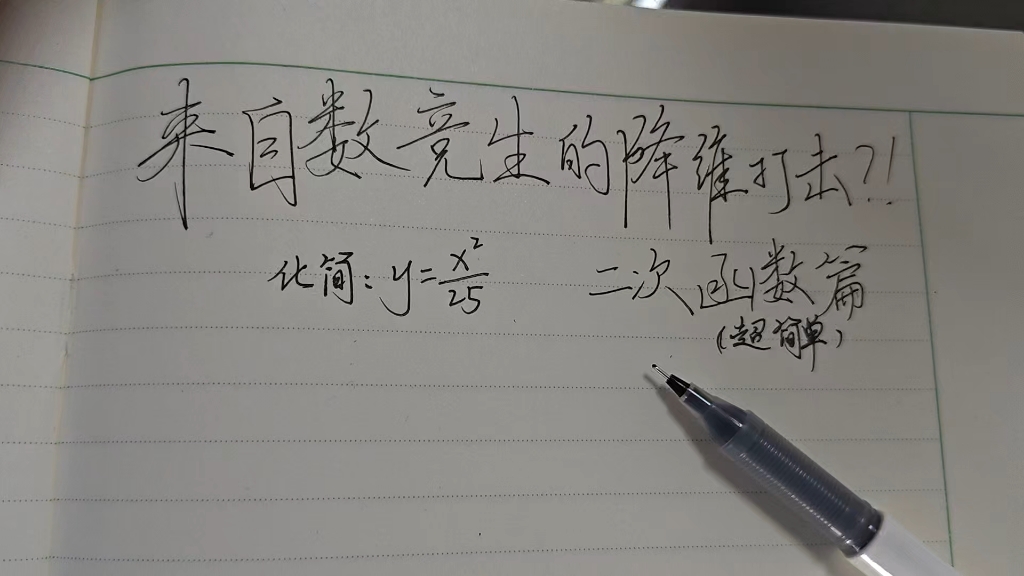 来自数竞生的降维打击?!
化简: y = x²/25 二次函数篇
(超简单)